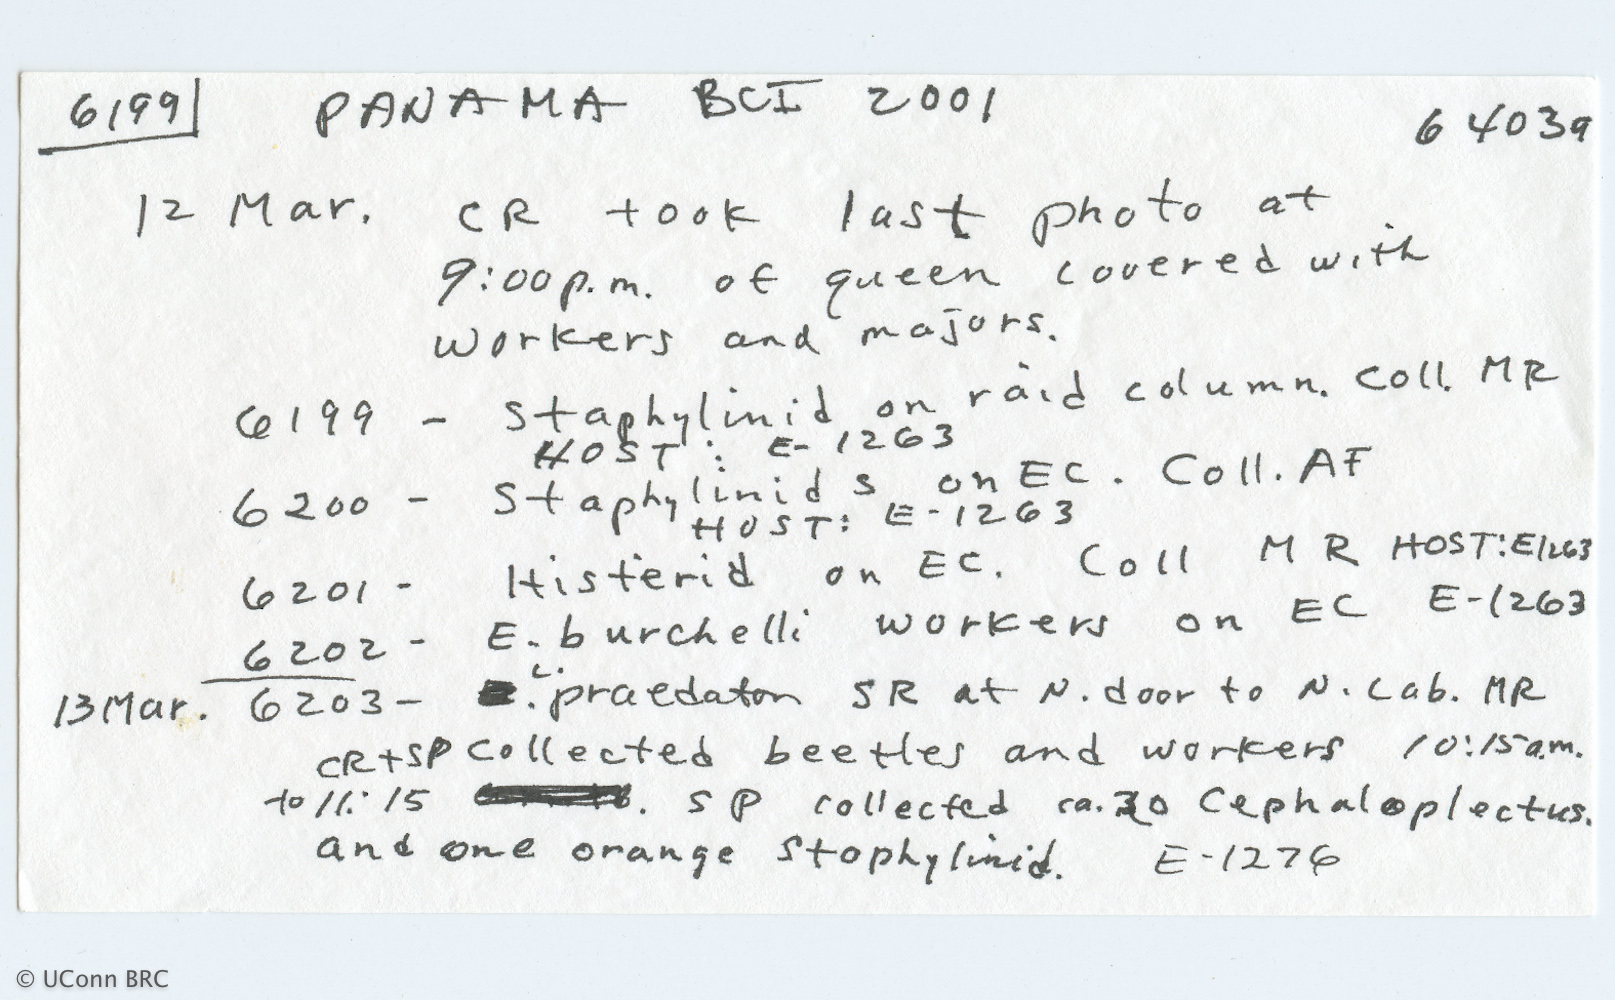 6199 PANAMA BCI 2001 64039
12 Mar. CR took last photo at
9:00p.m. of queen covered with
workers and majors.
6199 - Staphylinid on raid column. Coll. MR
HOST: E-1263
6200 - Staphylinids on EC. Coll. AF
HOST: E-1263
6201 - Histerid on EC. Coll MR HOST: E1263
6202 - E. burchelli workers on EC E-1263
13 Mar. 6203 - L. praedaton SR at N. door to N. Lab. MR
CR+SP collected beetles and workers 10:15 a.m.
to 11:15 . SP collected ca. 30 Cephaloplectus.
and one orange Stophylinid. E-1276
© UConn BRC